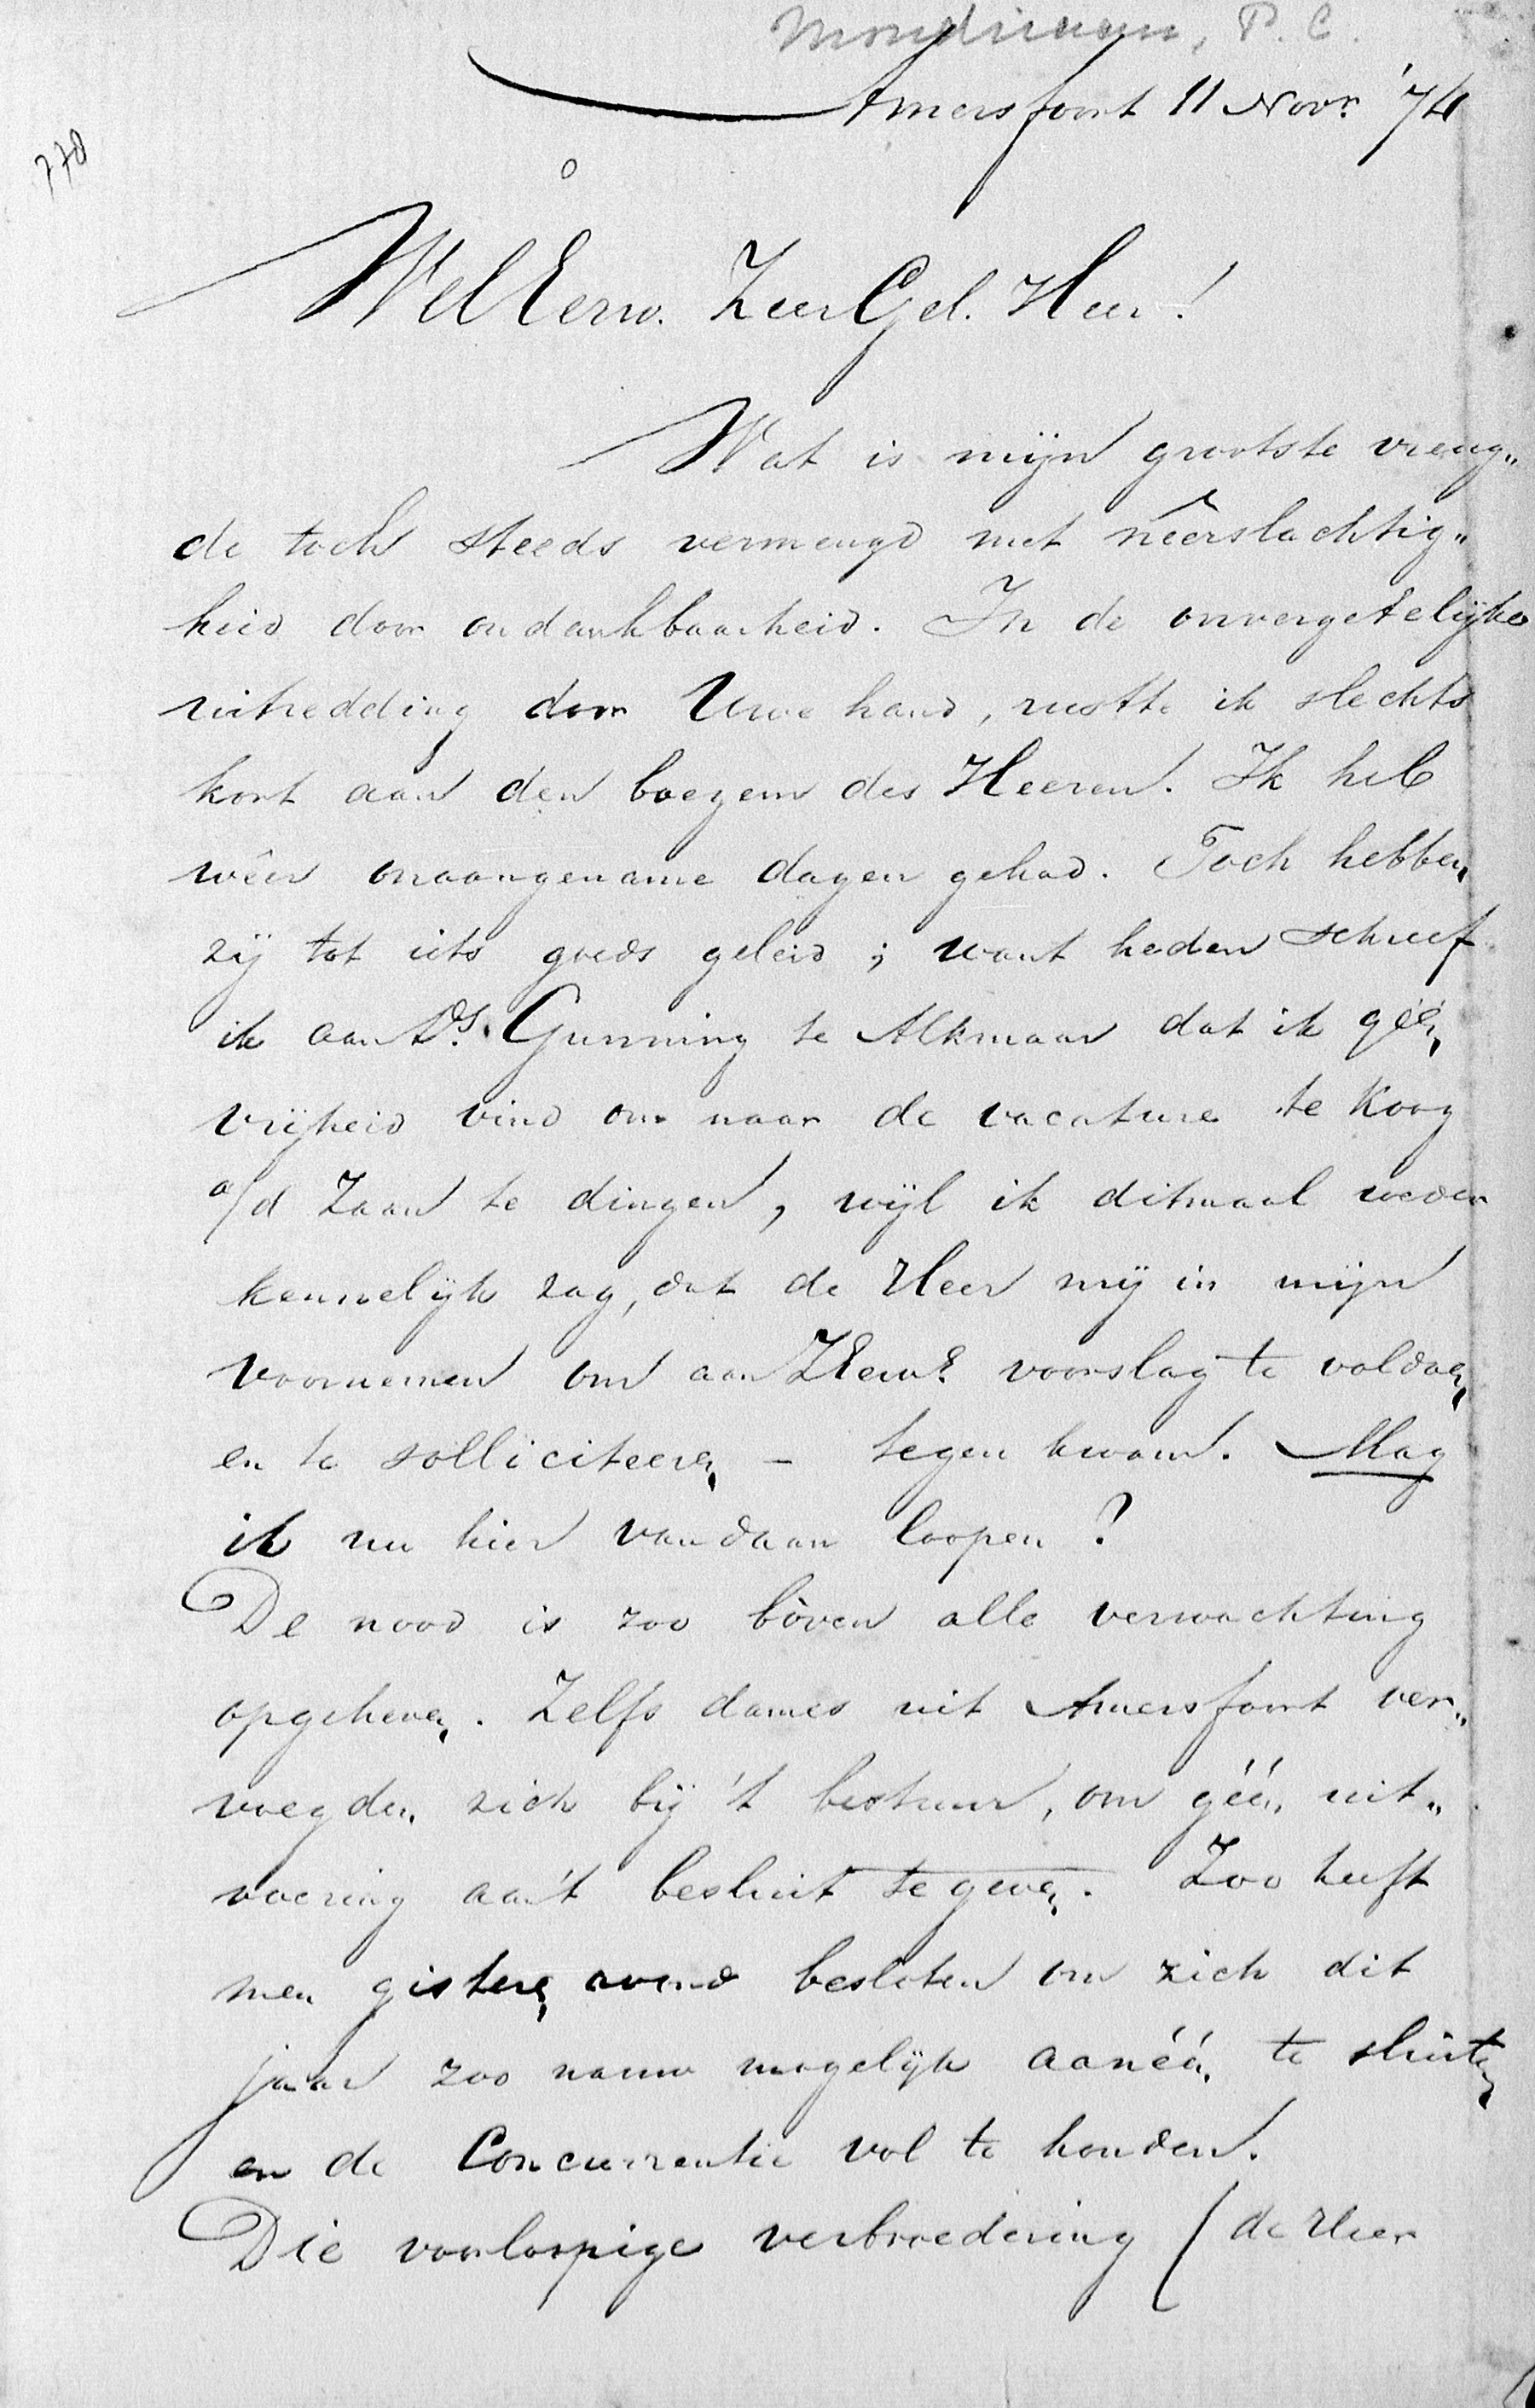 Mondriaan, P. C.
Amersfoort 11 Novr. '74
778
WelEerw. ZeerGel. Heer!
Wat is mijn grootste vreug„
de toch steeds vermengd met nêerslachtig„
heid door ondankbaarheid. In de onvergetelijke
uitredding door Uwe hand, rustte ik slechts
kort aan den boezem des Heeren. Ik heb
wêer onaangename dagen gehad. Toch hebben
zij tot iets goeds geleid; want heden schreef
ik aan Ds. Gunning te Alkmaar dat ik géén
vrijheid vind om naar de vacature te Koog
a/d Zaan te dingen, wijl ik ditmaal weder
kennelijk zag, dat de Heer mij in mijn
voornemen om aan ZEerw. voorslag te voldoen
en te solliciteeren – tegen kwam. Mag
ik nu hier vandaan loopen?
De nood is zoo bòven alle verwachting
opgeheven. Zelfs dames uit Amersfoort ver„
voegden zich bij 't bestuur, om géén uit„
voering aan 't besluit te geven. Zoo heeft
men gisteren avond besloten om zich dit
jaar zoo nauw mogelijk aanéén te sluiten
en de Concurrentie vol te houden.
Die voorloopige verbroedering (de Heer